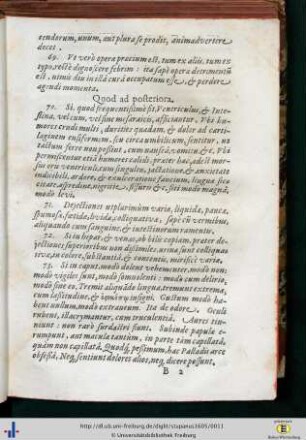 rendorum, unum, aut plura se prodit, animadvertere
decet.
69. Vt verò opera precium est, tum ex aliis, tum ex
typo, rectè dignoscere febrim: ita sæpè opera detrimentū
est, nimis diu in illâ curâ occupatum esse, & perdere
agendi momenta.
Quod ad posteriora.
70. Si, quod frequentissimè fit, Ventriculus, & Inte-
stina, vel cum, vel sine mesaraicis, afficiantur. Vbi hu-
mores crudi multi, durities quædam, & dolor ad carti-
laginem ensiformem, seu circa umbilicum, sentitur, nu
tactum ferre non possunt, cum nauseâ, vomitu, & c. Vbi
permisti cum etiā humores calidi: præter hac, adest mor-
sus oru ventriculi, cum singultu, jactatione, & anxietate
indicibili, ardore, & exulceratione faucium, linguæ sic-
citate, aspredine, nigritie, fissuris & c. siti modò magnâ,
modò levi.
71. Dejectiones utplurimùm variæ, liquidæ, pancæ,
spumosæ, fœtidæ, lividæ, colliquativæ, sæpè cū vermibus,
aliquando cum sanguine, & intestinorum ramentu.
72. Si in hepar, & venas, ob bilis copiam, præter de-
jectiones superioribus non dissimiles, urinæ sunt colliquan-
tes, in colore, substantiâ, & contentis, mirificè variæ.
73. Si in caput, modò dolent vehementer, modò non;
modò vigiles sunt, modò somnolenti: modò cum delirio,
modò sine eo. Tremit aliquādo lingua, tremunt extrema,
cum lassitudine, & insigni. Gustum modò ha-
bent nullum, modò extraneum. Ita de odore. Oculi
rubent, illacrymantur, cum truculentiâ. Aures tin-
niunt: non rarò surdastri fiunt. Subinde papulæ e-
rumpunt, aut maculæ tantùm, in parte tàm capillatâ,
quàm non capillatâ. Quodq, pessimum, hac Palladis arce
obsessâ, Neq, sentiunt dolores alios, neq, dicere possunt.
B 2
http://dl.ub.uni-freiburg.de/diglit/stupanus1605/0011
© Universitätsbibliothek Freiburg